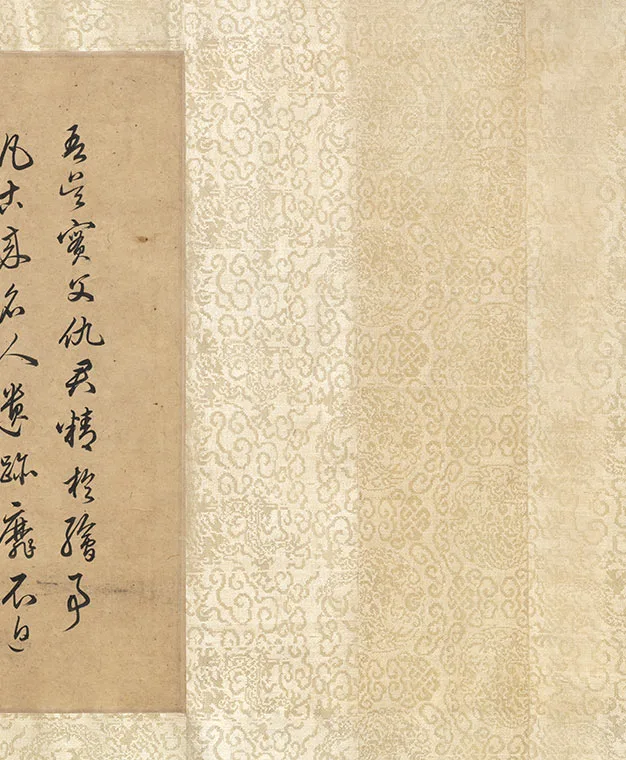 吾吳實父仇君精於繪事
凡古來名人遺跡靡不追